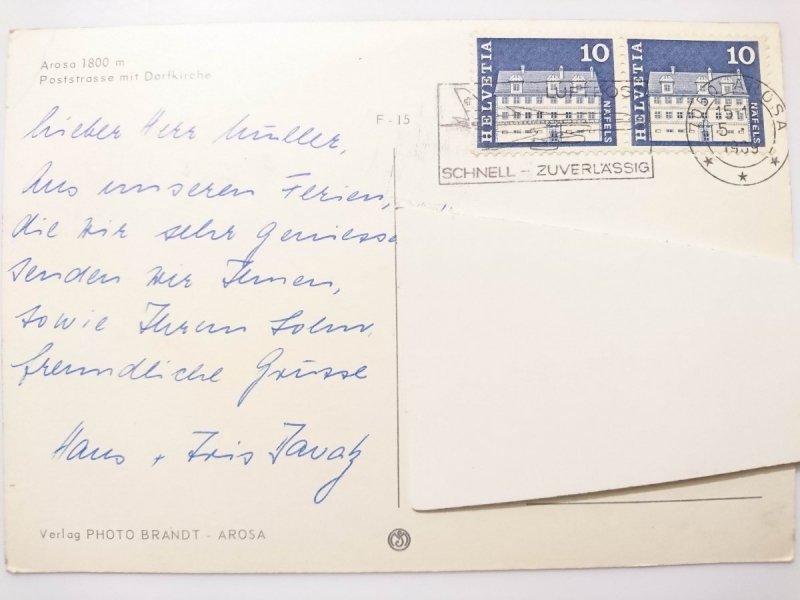 Arosa 1800 m
Poststrasse mit Dorfkirche
F - 15
Lieber Herr Müller,
Aus unseren Ferien,
die wir sehr geniessen
senden wir Ihnen,
sowie Ihrem Sohn,
freundliche Grüsse
Hans + Iris
Verlag PHOTO BRANDT - AROSA
HELVETIA 10 NÄFELS
HELVETIA 10 NÄFELS
LUFTPOST
SCHNELL - ZUVERLÄSSIG
AROSA